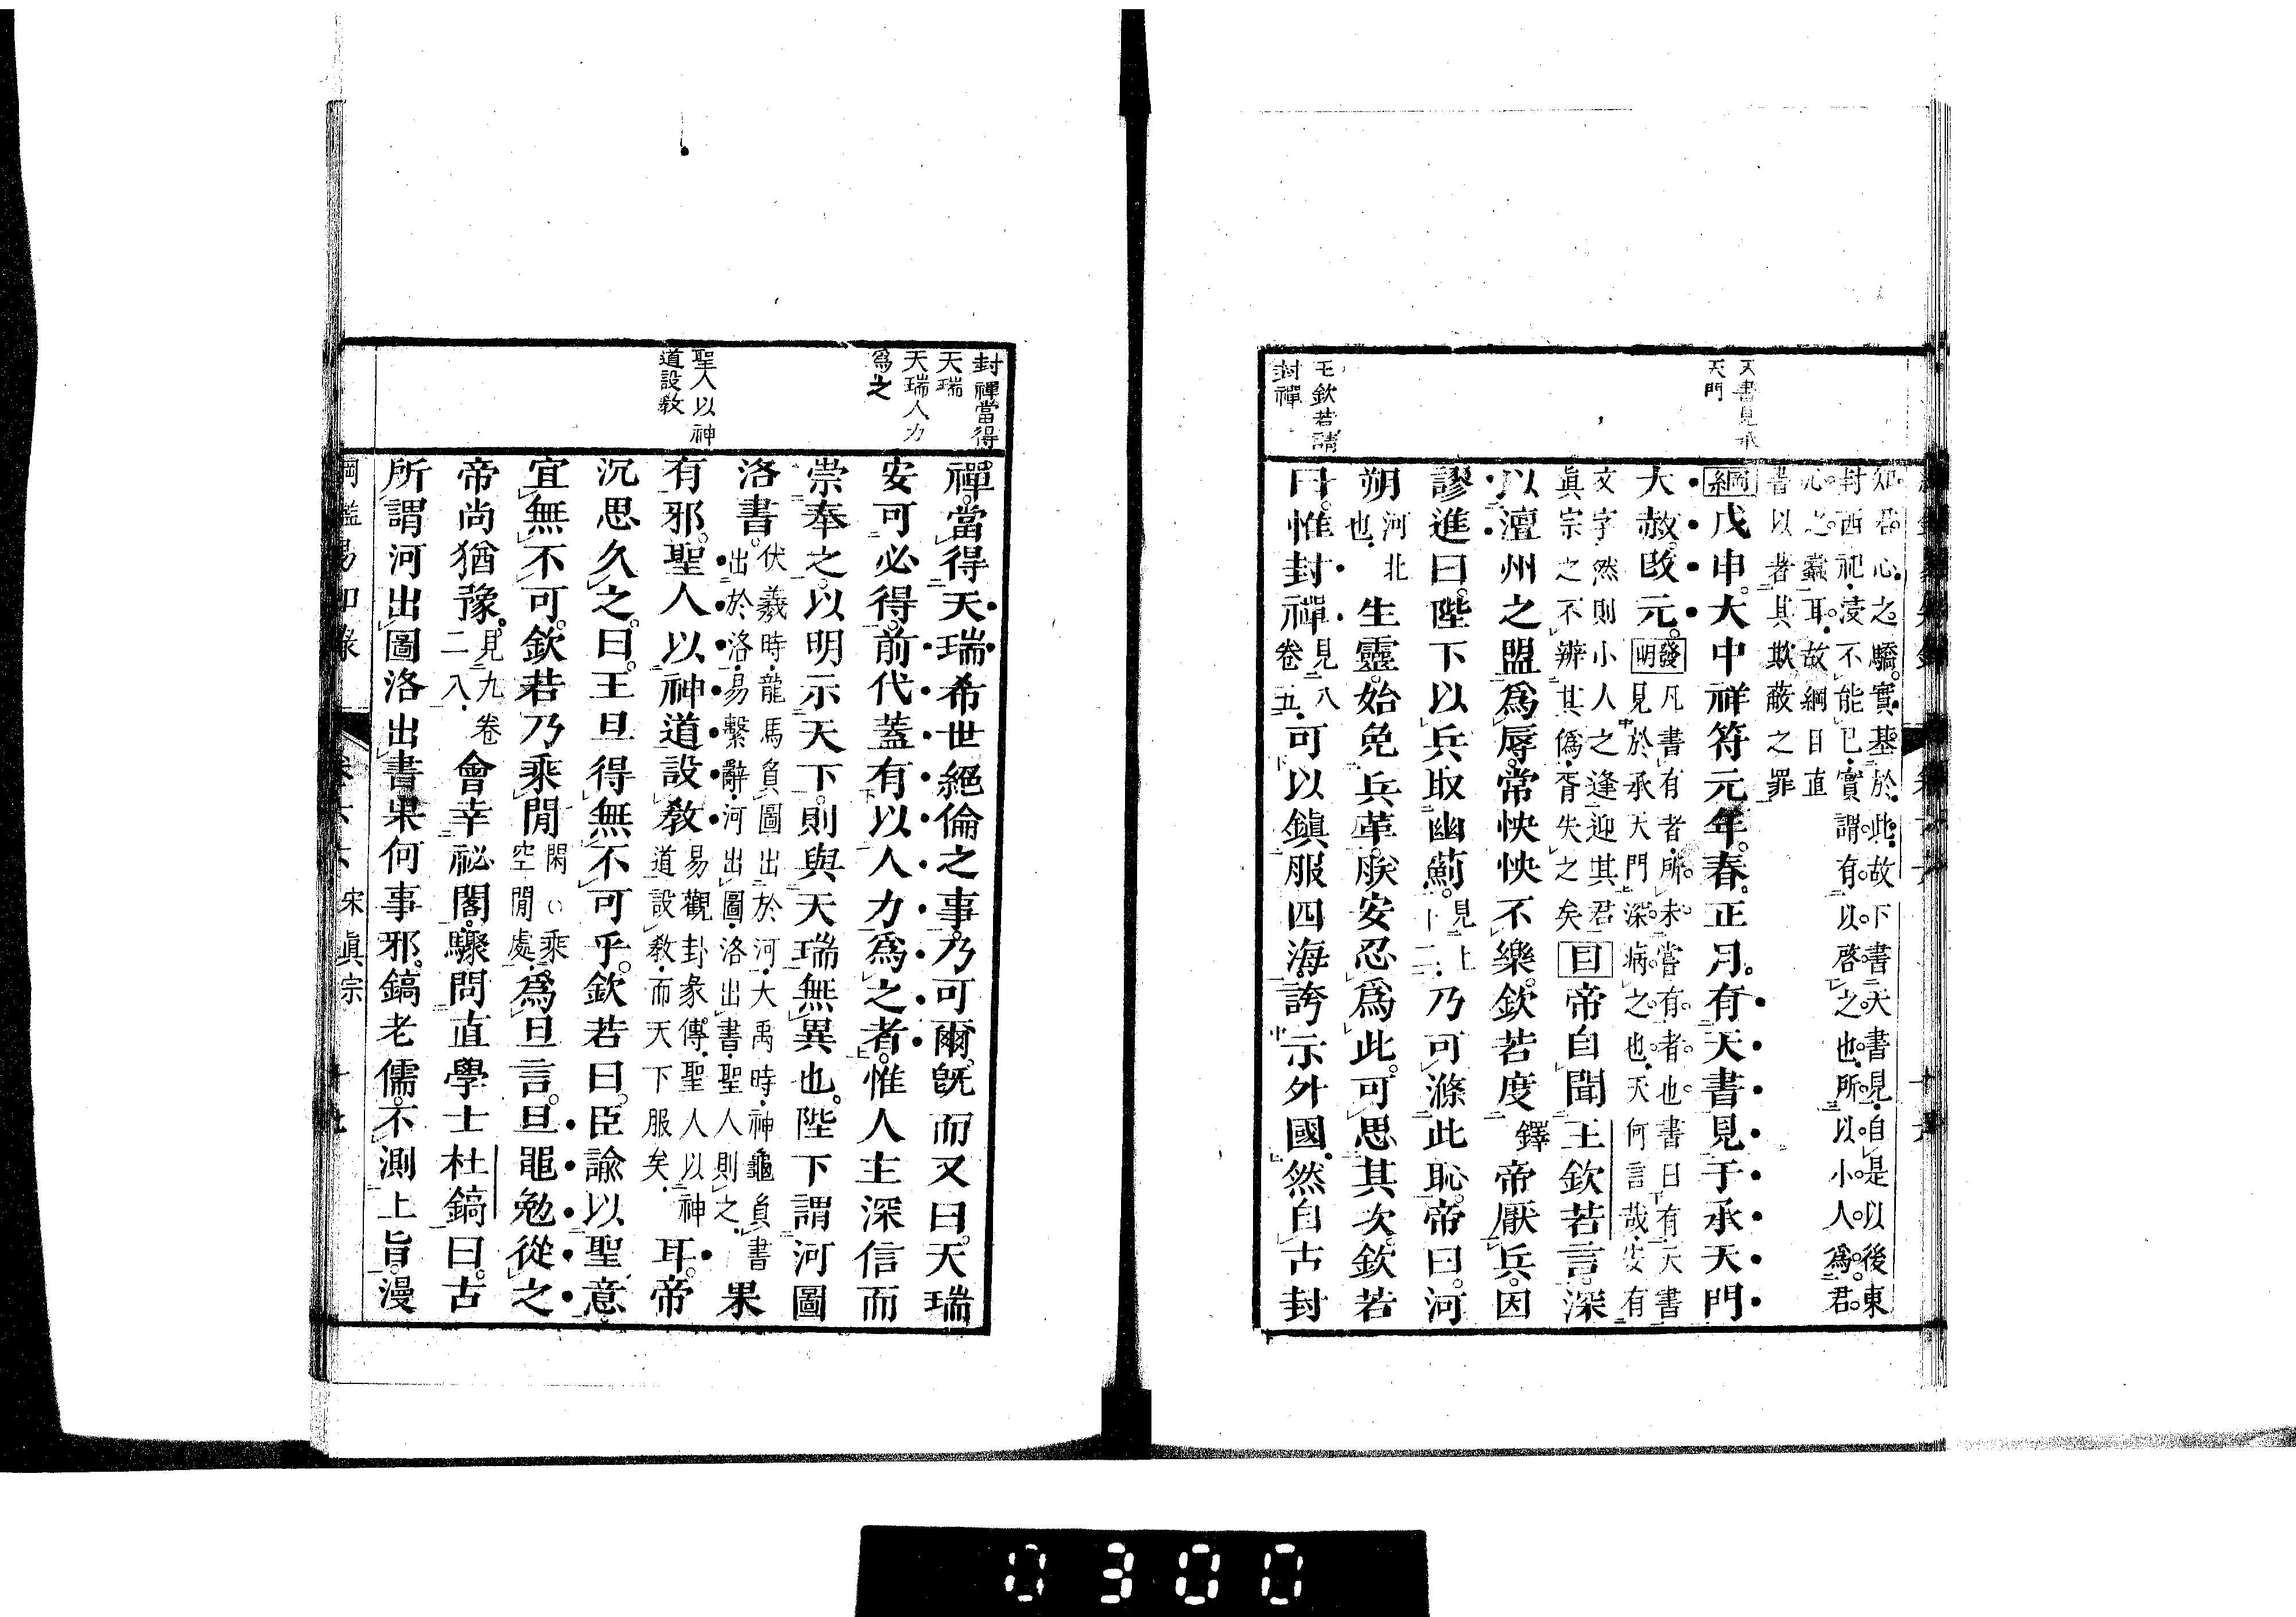 天書見承
天門
王欽若請
封禪
知君心之驕。實基於此。故下書天書見。自是以後東
封西祀。浸不能已。實謂有以啓之也。所以小人爲君
心之蠹耳。故綱目直
書以著其欺蔽之罪
綱戊申。大中祥符元年。春。正月。有天書見于承天門
大赦。改元。發明凡書有者。所未嘗有者也。書曰有天書
見於承天門。深病之也。天何言哉。安有
文字。然則小人之逢迎其君
眞宗之不辨其僞。胥失之矣
目帝自聞王欽若言。深
以澶州之盟爲辱。常怏怏不樂。欽若度鐸帝厭兵。因
謬進曰。陛下以兵取幽薊。見上卜二。乃可滌此恥。帝曰。河
朔河北也。生靈。始免兵革。朕安忍爲此。可思其次。欽若
曰。惟封禪見八卷五。可以鎮服四海。誇示外國。然自古封
封禪當得
天瑞
天瑞人力
爲之
聖人以神
道設敎
禪。當得天瑞希世絕倫之事。乃可爾。旣而又曰。天瑞
安可必得。前代蓋有以人力爲之者。惟人主深信而
崇奉之。以明示天下。則與天瑞無異也。陛下謂河圖
洛書。伏羲時。龍馬負圖出於河。大禹時。神龜負書
出於洛。易繫辭。河出圖。洛出書。聖人則之。果
有邪。聖人以神道設敎易觀卦彖傳。聖人以神
道設敎。而天下服矣。耳。帝
沉思久之。曰。王旦得無不可乎。欽若曰。臣諭以聖意
宜無不可。欽若乃乘閒閑乘空閒處。爲旦言。旦黽勉從之
帝尚猶豫。見九卷二八。會幸祕閣。驟問直學士杜鎬曰。古
所謂河出圖洛出書果何事邪。鎬老儒。不測上旨。漫
綱鑑易知錄 卷六六 宋眞宗